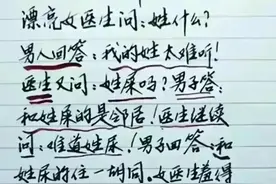 漂亮女医生问:姓什么?
男人回答:我的姓太难听!
医生又问:姓屎吗?男子答:
和姓屎的是邻居!医生继续
问:难道姓尿!男子回答:和
姓尿的住一胡同。女医生羞得